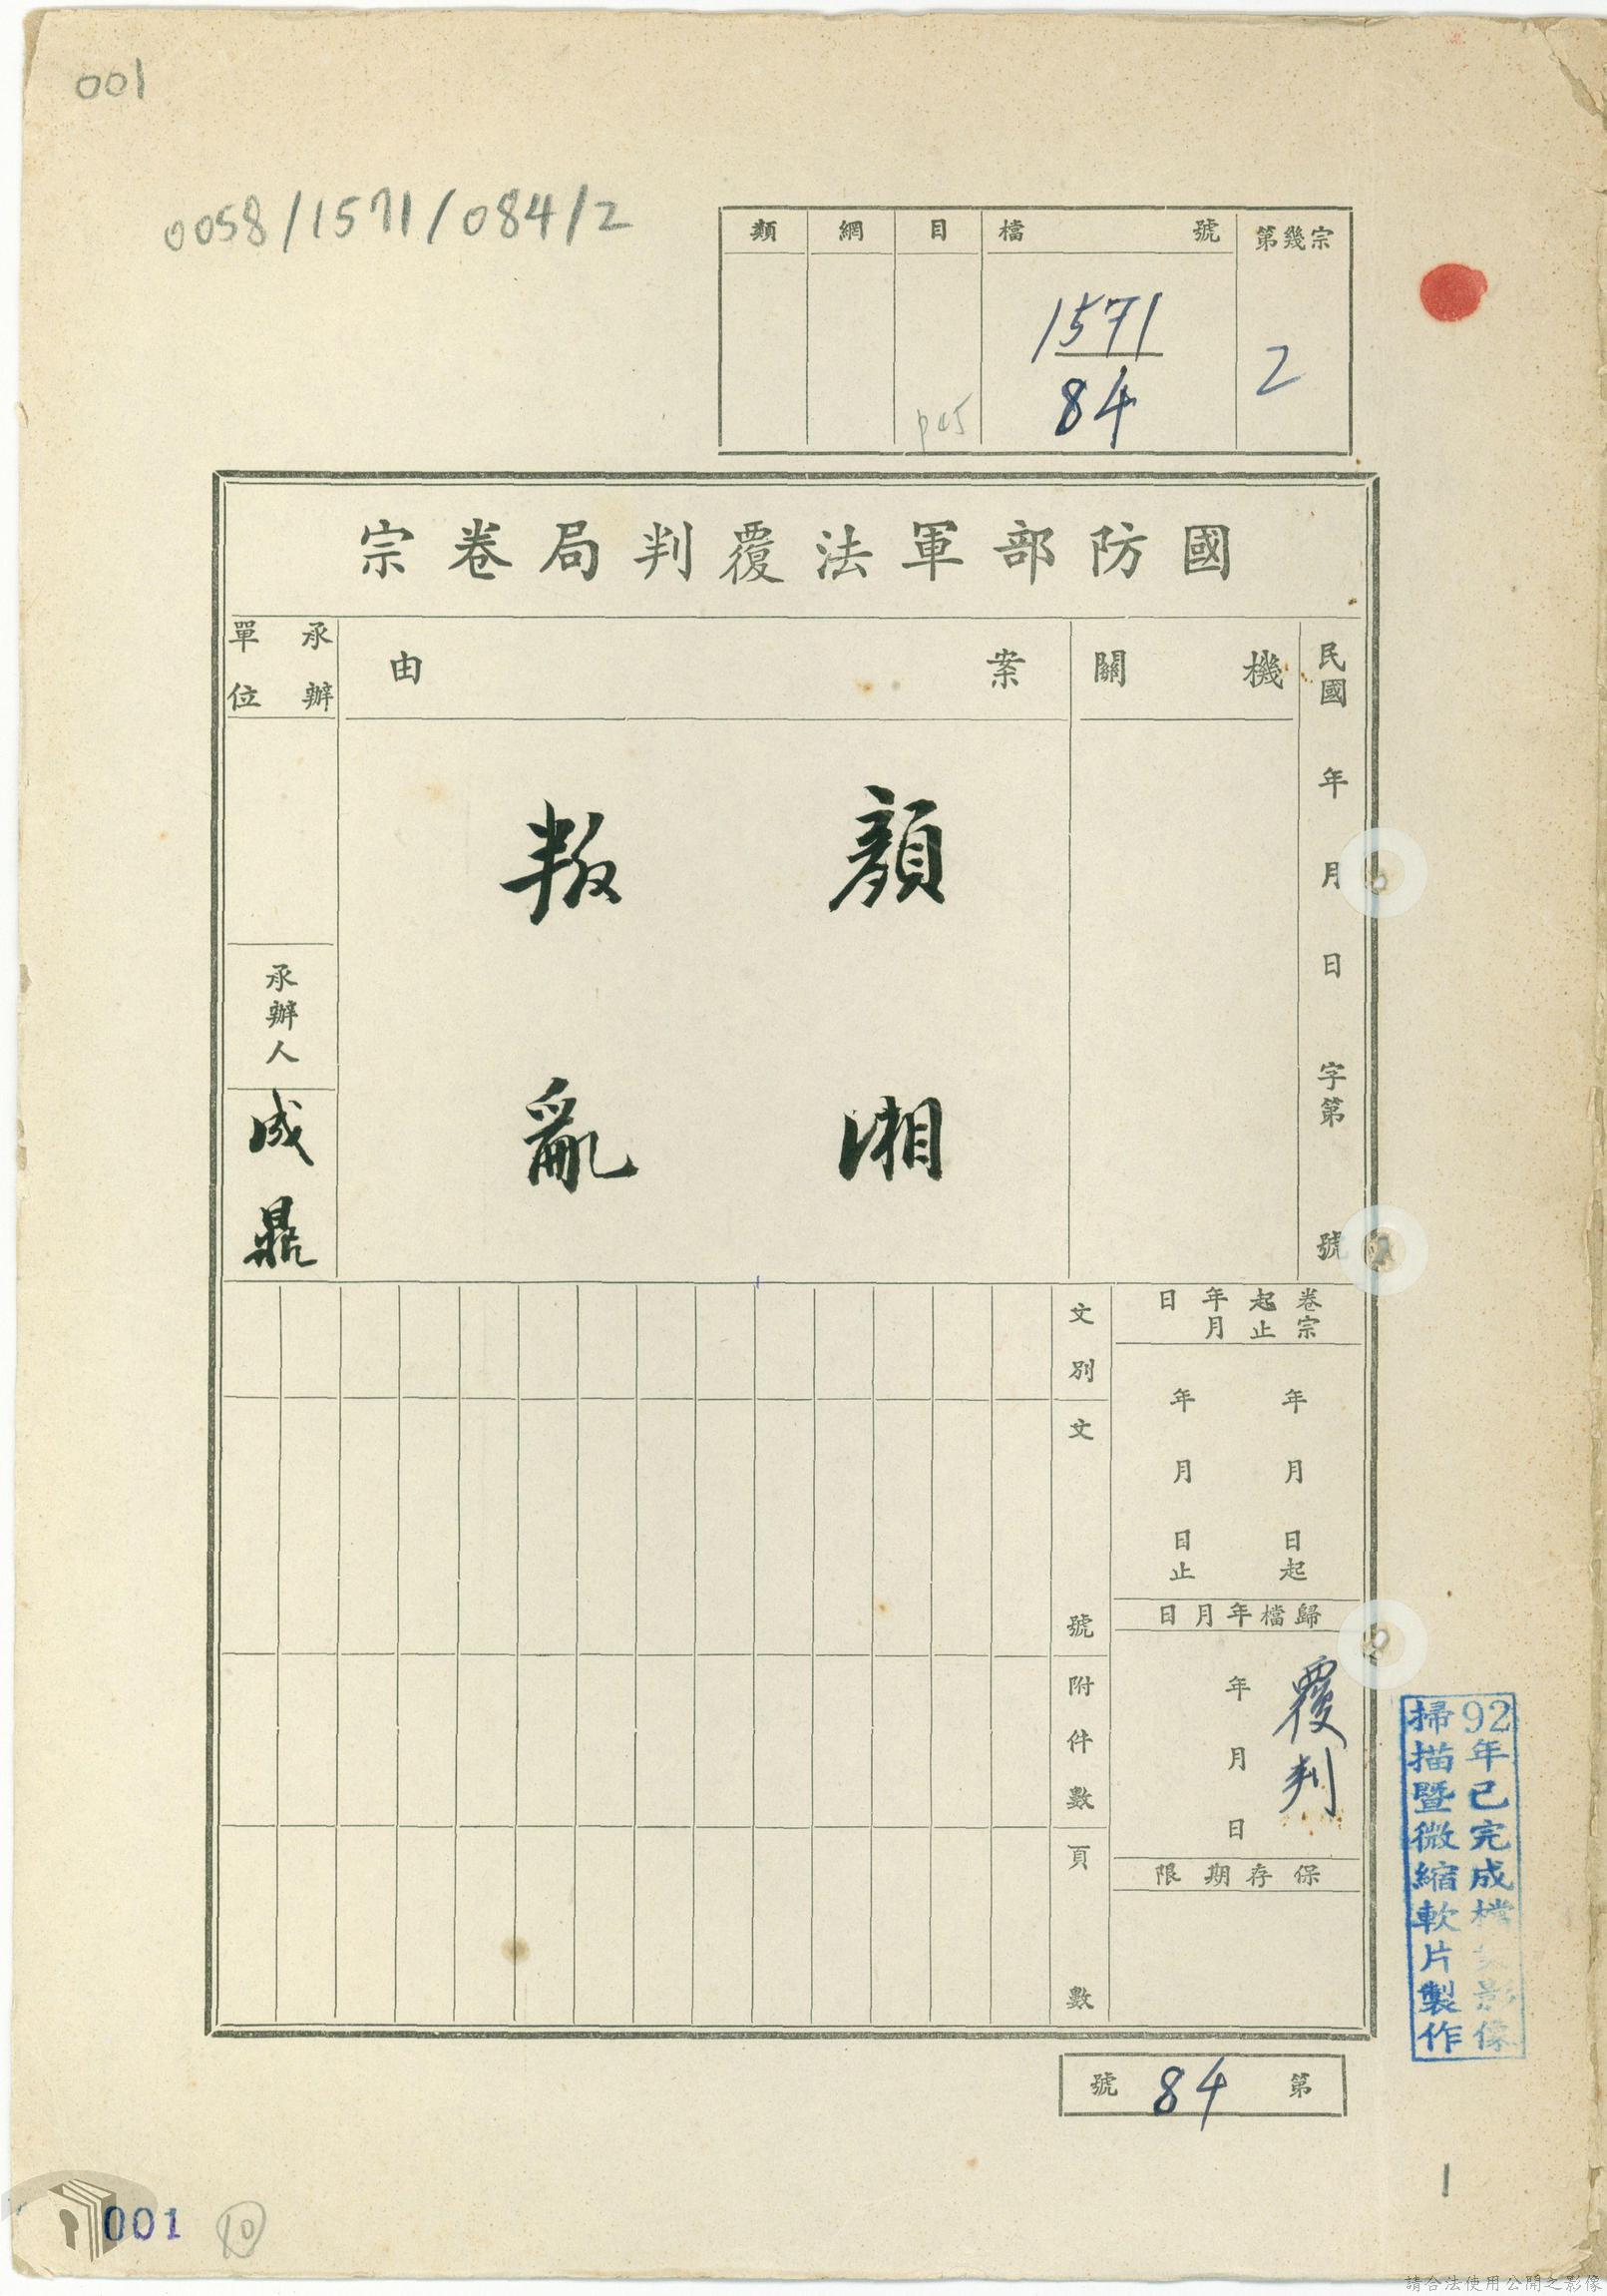 001
0058/1571/084/2
類 綱 目 檔號 第幾宗
1571
84
2
國防部軍法覆判局卷宗
民國 年 月 日 字第 號
機關
案由
顏湘
叛亂
承辦單位
承辦人
成鼎
卷宗起止年月日
年 月 日起
年 月 日止
歸檔年月日
年 月 日
覆判
保存期限
文別
文號
附件數
頁數
第 84 號
92年已完成檔案影像
掃描暨微縮軟片製作
1
001
10
請合法使用公開之影像